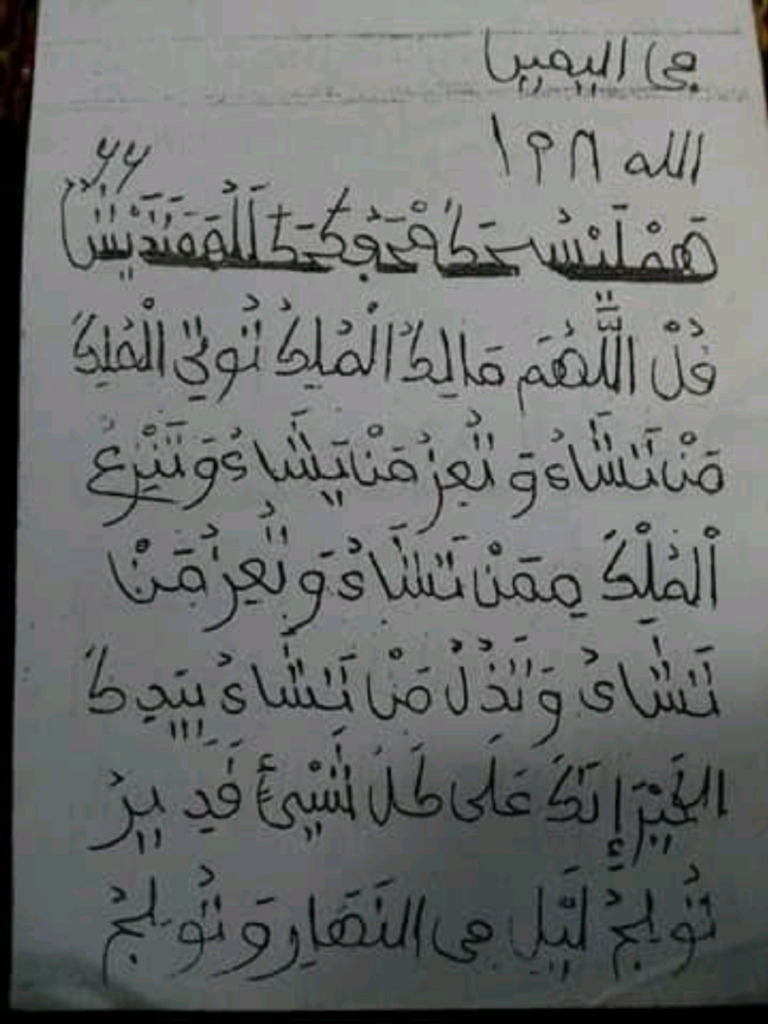 في اليمين
الله ١٣٨ ٦٦
قُلْ اللَّهُمَ مَالِكُ الْمُلِكُ تُوتِي الْمُلِكُ
مَنْ تَشَّاءُ وَ تُعِزُ مَنْ يَشَّاءُ وَتَنْزِعُ
الْمُلْكَ مِمَنْ تَشَّاءُ وَ تُعِزُ مَنْ
تَشَّاءُ وَتُذُلُ مَنْ تَشَّاءُ بِيَدِكَ
الخَيْرَ إِنَكَ عَلَى كَلُ شَيْئٍ قَدِيرُ
تُولِجُ لَيْلِ فى النَهَارِ وَتُولِجُ